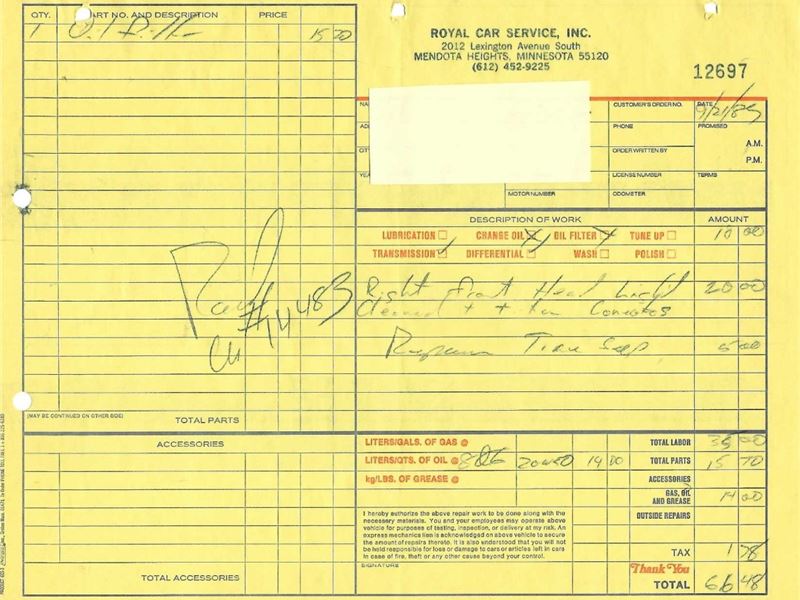 QTY. PART NO. AND DESCRIPTION PRICE
1 Oil Filter 15 70
ROYAL CAR SERVICE, INC.
2012 Lexington Avenue South
MENDOTA HEIGHTS, MINNESOTA 55120
(612) 452-9225
12697
CUSTOMER'S ORDER NO. DATE 9/21/89
PHONE PROMISED
A.M.
ORDER WRITTEN BY P.M.
LICENSE NUMBER TERMS
MOTOR NUMBER ODOMETER
DESCRIPTION OF WORK AMOUNT
LUBRICATION CHANGE OIL OIL FILTER TUNE UP 10 00
TRANSMISSION DIFFERENTIAL WASH POLISH
Right Front Head Light 20 00
Cleaned
5 00
Paid
CK #14483
(MAY BE CONTINUED ON OTHER SIDE)
TOTAL PARTS
ACCESSORIES
LITERS/GALS. OF GAS @ TOTAL LABOR 35 00
LITERS/QTS. OF OIL @ 20W50 14 00 TOTAL PARTS 15 70
kg/LBS. OF GREASE @ ACCESSORIES
GAS, OIL AND GREASE 14 00
I hereby authorize the above repair work to be done along with the
necessary materials. You and your employees may operate above
vehicle for purposes of testing, inspection, or delivery at my risk. An
express mechanics lien is acknowledged on above vehicle to secure
the amount of repairs thereto. It is also understood that you will not
be held responsible for loss or damage to cars or articles left in cars
in case of fire, theft or any other cause beyond your control.
OUTSIDE REPAIRS
SIGNATURE
TAX 1 78
Thank You
TOTAL ACCESSORIES
TOTAL 66 48